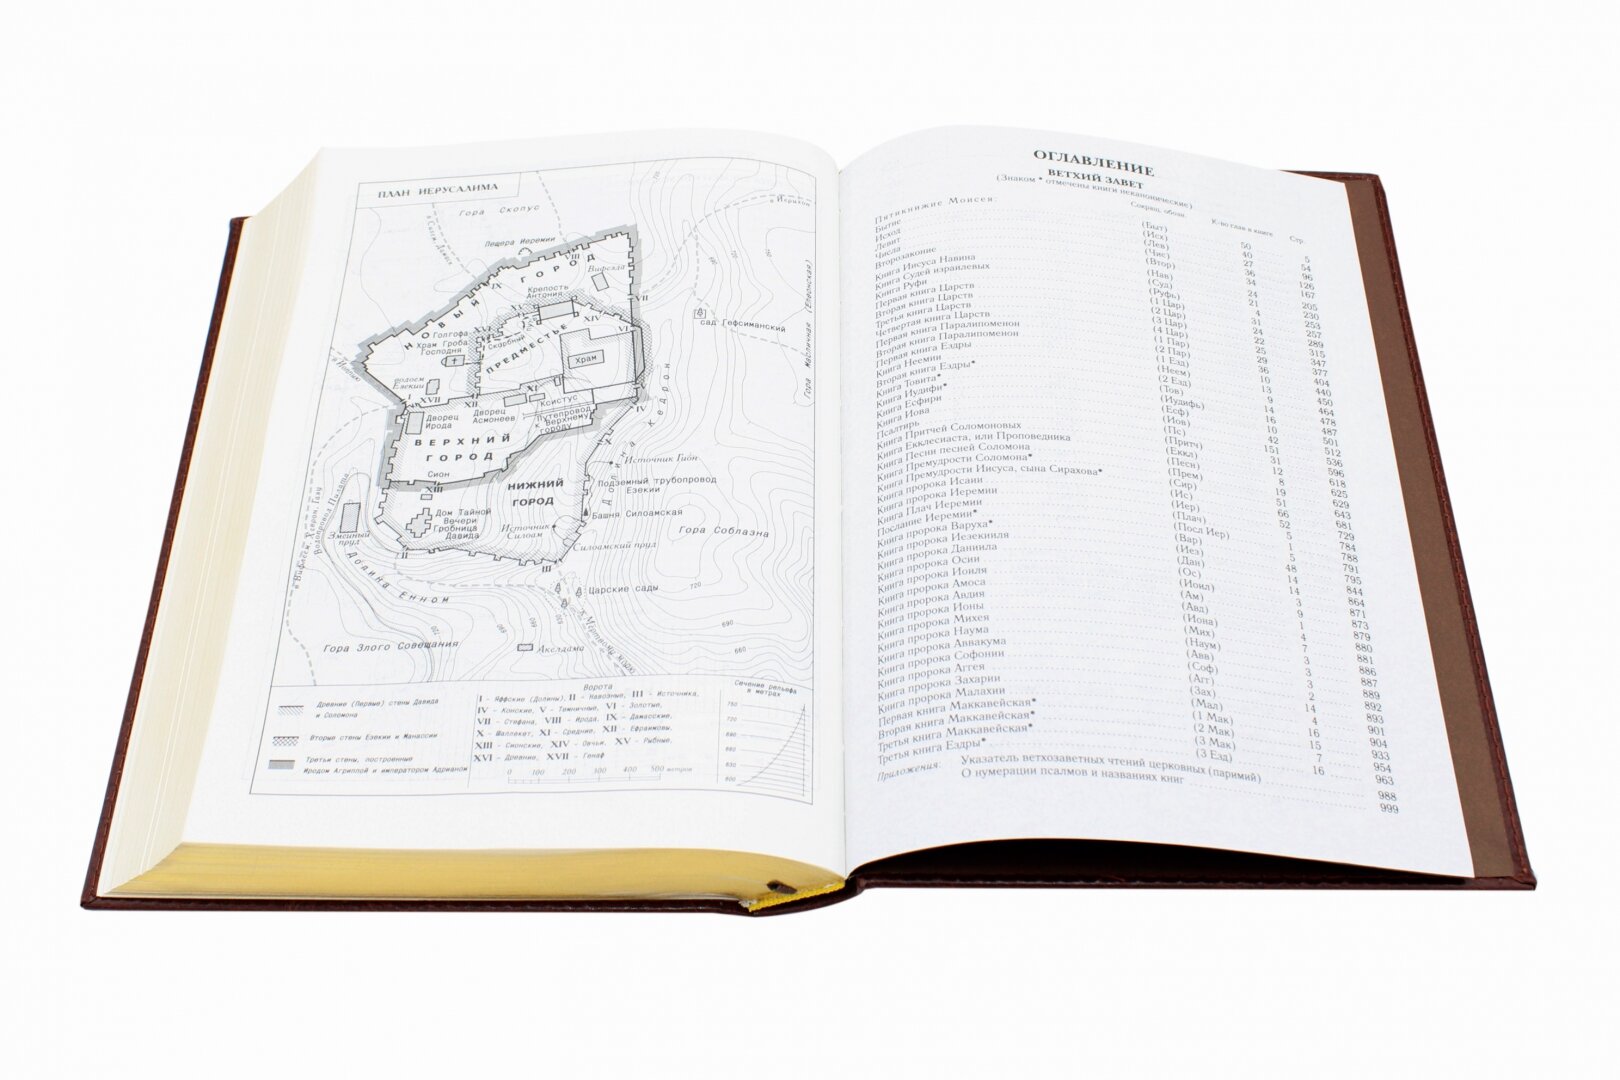 ПЛАН ИЕРУСАЛИМА
Гора Скопус
в Иерихон
Пещера Иеремии
VIII
Вифезда
НОВЫЙ ГОРОД
IX
Крепость Антония
VII
сад Гефсиманский
Гора Масличная (Елеонская)
XIV
VI
Голгофа
Храм Гроба Господня
Скорбный путь
ПРЕДМЕСТЬЕ
Храм
водоем Езекии
I
XVII
XII
XI
Дворец Ирода
Дворец Асмонеев
Ксистус
Путепровод к Верхнему городу
IV
ВЕРХНИЙ ГОРОД
X
Долина Кедрон
Источник Гион
Сион
XIII
Подземный трубопровод Езекии
НИЖНИЙ ГОРОД
Дом Тайной Вечери
Гробница Давида
Источник Силоам
Башня Силоамская
Гора Соблазна
Силоамский пруд
Змеиный пруд
Водопровод Пилата
II
III
Долина Енном
Царские сады
к Мертвому морю
Гора Злого Совещания
Акелдама
720
690
660
Древние (Первые) стены Давида и Соломона
Вторые стены Езекии и Манассии
Третьи стены, построенные Иродом Агриппой и императором Адрианом
Ворота
I - Яффские (Долины), II - Навозные, III - Источника,
IV - Конские, V - Темничные, VI - Золотые,
VII - Стефана, VIII - Ирода, IX - Дамасские,
X - Шаллекет, XI - Средние, XII - Ефраимовы,
XIII - Сионские, XIV - Овчьи, XV - Рыбные,
XVI - Древние, XVII - Генаф
0 100 200 300 400 500 метров
Сечение рельефа в метрах
750
720
690
660
630
600
ОГЛАВЛЕНИЕ
ВЕТХИЙ ЗАВЕТ
(Знаком * отмечены книги неканонические)
Сокращ. обозн. К-во глав в книге Стр.
Пятикнижие Моисея:
Бытие (Быт) 50 5
Исход (Исх) 40 54
Левит (Лев) 27 96
Числа (Чис) 36 126
Второзаконие (Втор) 34 167
Книга Иисуса Навина (Нав) 24 205
Книга Судей израилевых (Суд) 21 230
Книга Руфи (Руфь) 4 253
Первая книга Царств (1 Цар) 31 257
Вторая книга Царств (2 Цар) 24 289
Третья книга Царств (3 Цар) 22 315
Четвертая книга Царств (4 Цар) 25 347
Первая книга Паралипоменон (1 Пар) 29 377
Вторая книга Паралипоменон (2 Пар) 36 404
Первая книга Ездры (1 Езд) 10 440
Книга Неемии (Неем) 13 450
Вторая книга Ездры* (2 Езд) 9 464
Книга Товита* (Тов) 14 478
Книга Иудифи* (Иудифь) 16 487
Книга Есфири (Есф) 10 501
Книга Иова (Иов) 42 512
Псалтирь (Пс) 151 536
Книга Притчей Соломоновых (Притч) 31 596
Книга Екклесиаста, или Проповедника (Еккл) 12 618
Книга Песни песней Соломона (Песн) 8 625
Книга Премудрости Соломона* (Прем) 19 629
Книга Премудрости Иисуса, сына Сирахова* (Сир) 51 643
Книга пророка Исаии (Ис) 66 681
Книга пророка Иеремии (Иер) 52 729
Книга Плач Иеремии (Плач) 5 784
Послание Иеремии* (Посл Иер) 1 788
Книга пророка Варуха* (Вар) 5 791
Книга пророка Иезекииля (Иез) 48 795
Книга пророка Даниила (Дан) 14 844
Книга пророка Осии (Ос) 14 864
Книга пророка Иоиля (Иоил) 3 871
Книга пророка Амоса (Ам) 9 873
Книга пророка Авдия (Авд) 1 879
Книга пророка Ионы (Иона) 4 880
Книга пророка Михея (Мих) 7 881
Книга пророка Наума (Наум) 3 886
Книга пророка Аввакума (Авв) 3 887
Книга пророка Софонии (Соф) 3 889
Книга пророка Аггея (Агг) 2 892
Книга пророка Захарии (Зах) 14 893
Книга пророка Малахии (Мал) 4 901
Первая книга Маккавейская* (1 Мак) 16 904
Вторая книга Маккавейская* (2 Мак) 15 933
Третья книга Маккавейская* (3 Мак) 7 954
Третья книга Ездры* (3 Езд) 16 963
Приложения: Указатель ветхозаветных чтений церковных (паримий) 988
О нумерации псалмов и названиях книг 999